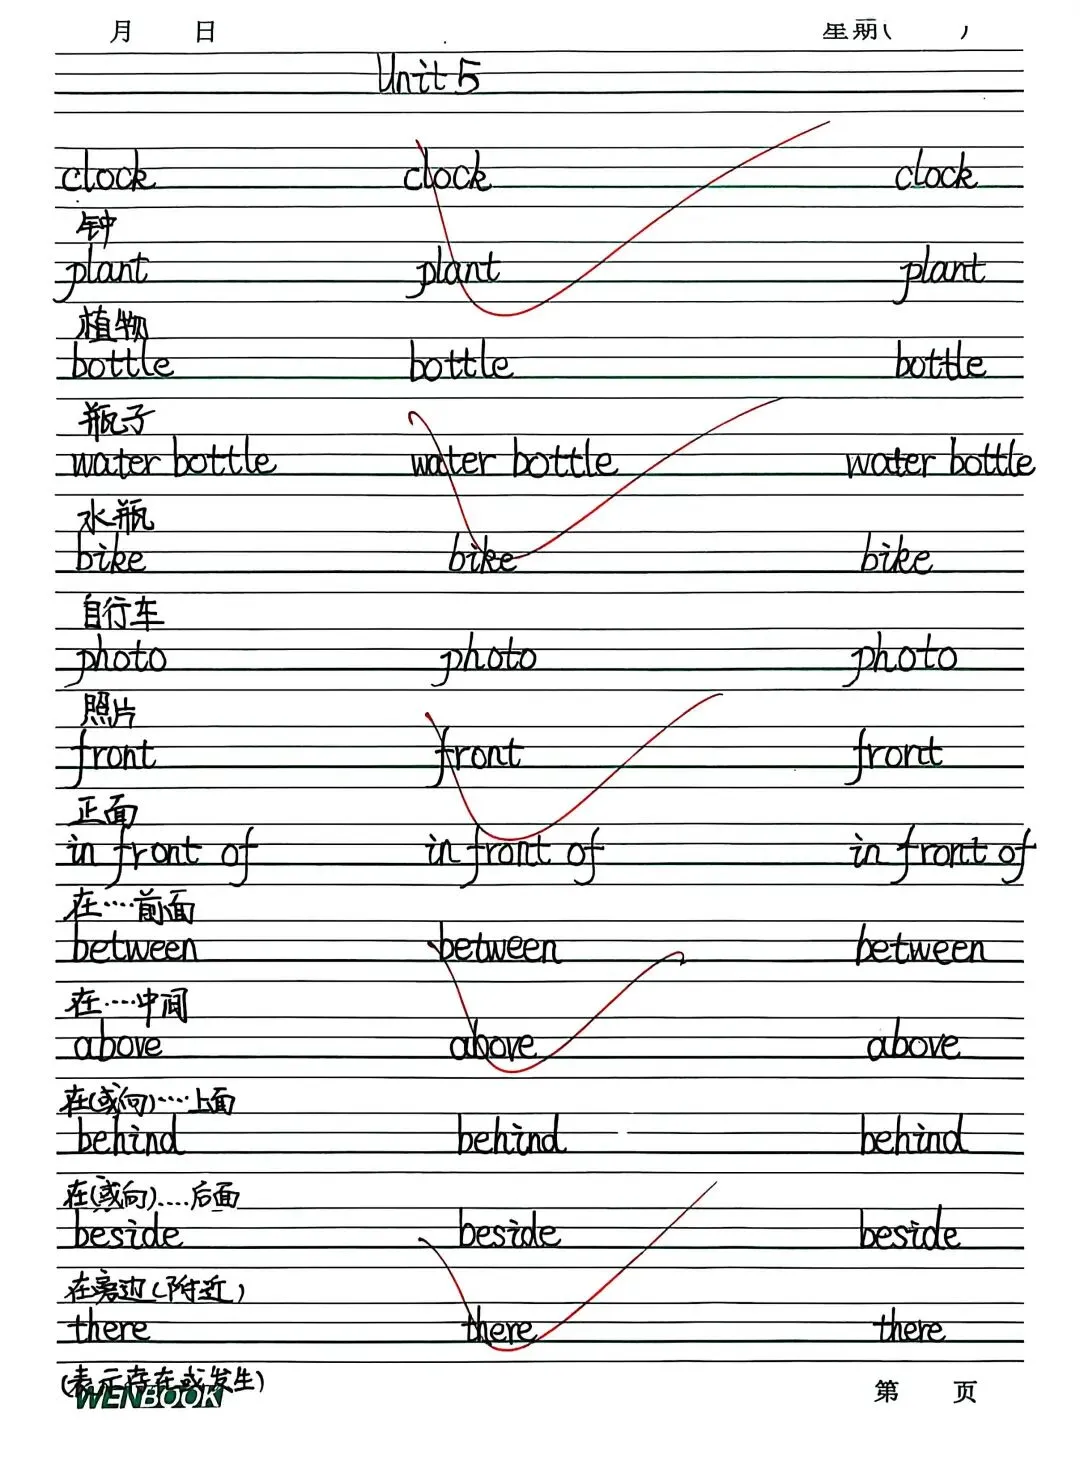 月 日 星期( )
Unit 5
clock clock clock
钟
plant plant plant
植物
bottle bottle bottle
瓶子
water bottle water bottle water bottle
水瓶
bike bike bike
自行车
photo photo photo
照片
front front front
正面
in front of in front of in front of
在····前面
between between between
在····中间
above above above
在(或向)····上面
behind behind behind
在(或向)....后面
beside beside beside
在旁边(附近)
there there there
(表示存在或发生)
WENBOOK 第 页